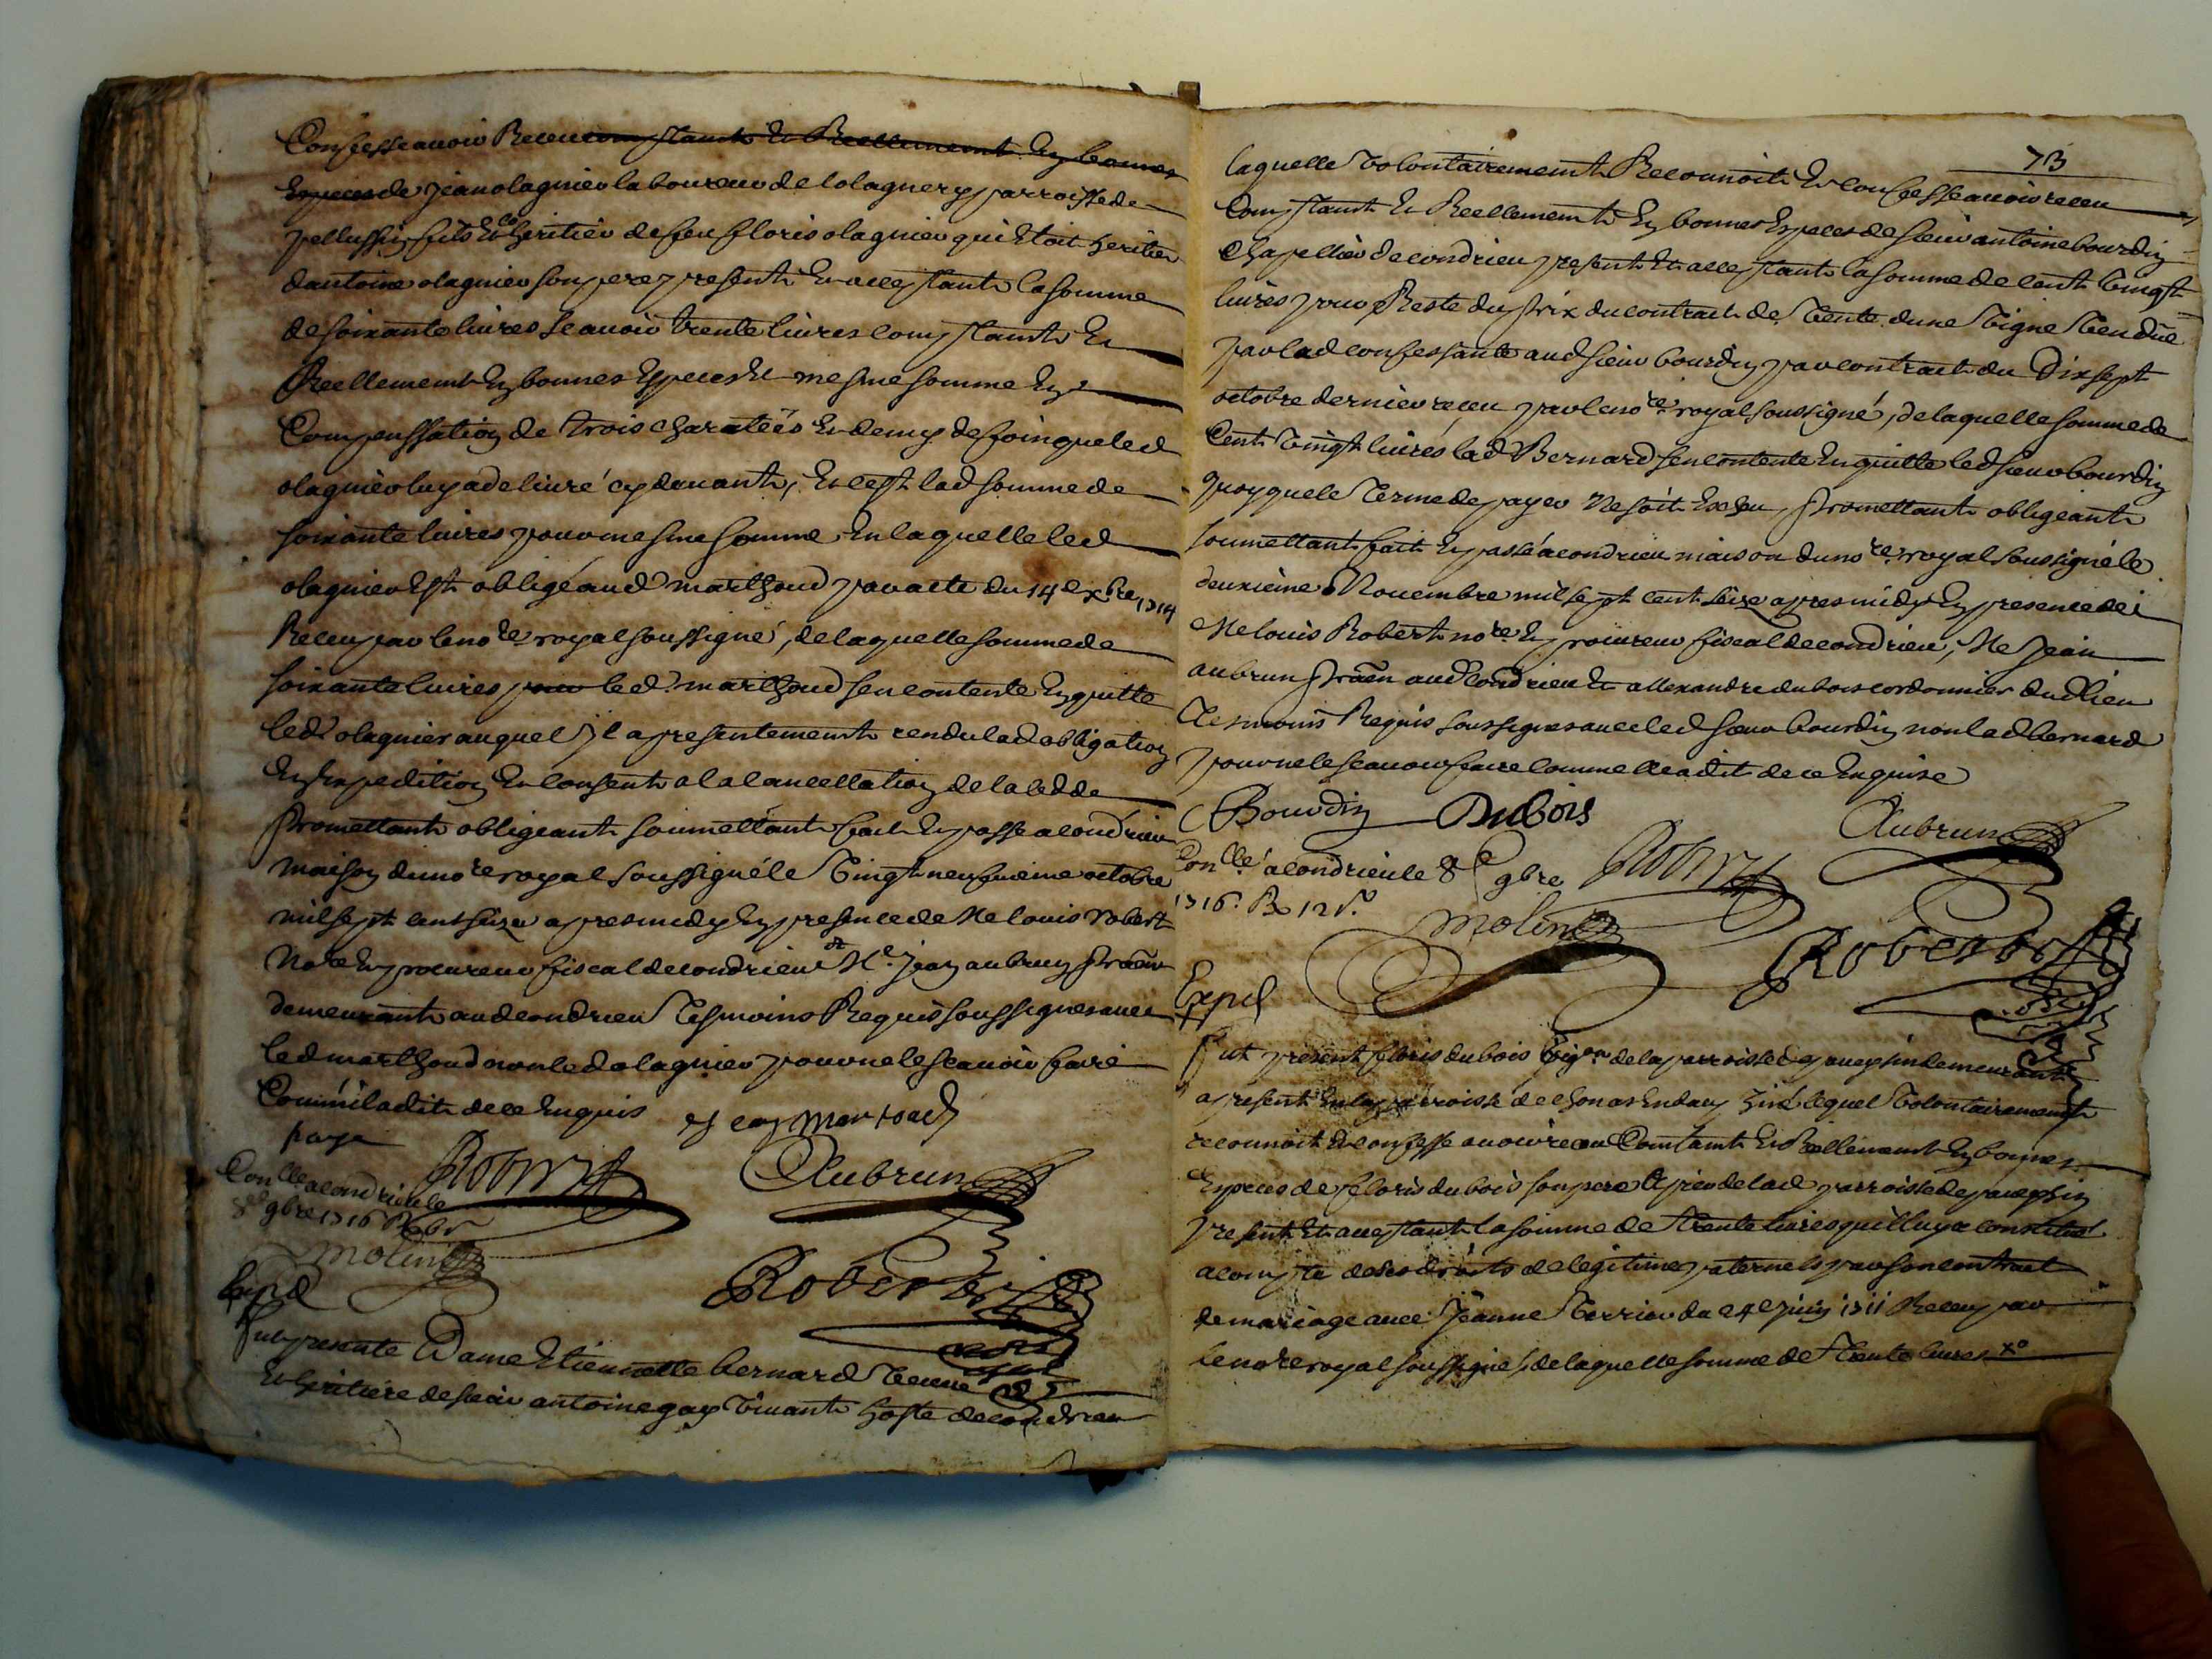 Confesse avoir Receu comptant Et Reellement En bonnes
Especes de jean olagnier laboureur de lolagnery parroisse de
pellussin fils Et coheritier de feu floris olagnier qui Etoit heritier
dantoine olagnier son pere present Et acceptant la somme
de soixante livres scavoir trente livres comptant Et
Reellement En bonnes Especes Et mesme somme En
Compenssation de trois charatées Et demy de foin que led
olagnier luy a delivré cy devant, Et c'est lad somme de
soixante livres pour mesme somme En laquelle led
olagnier Est obligé aud marthoud par acte du 14e xbre 1714
Receu par le nore royal soussigné, de laquelle somme de
soixante livres pour led marthoud sen contente En quitte
led olagnier auquel jl a presentement rendu lad obligation
En Expedition Et consent a la cancellation de la cedde
promettant obligeant soumettant fait Et passe a condrieu
maison du nore royal soussigné le Vingt neufvieme octobre
mil sept cent seize apres midy En presence de Me louis robert
Nore Et procureur fiscal de condrieu et Me jean aubrun praen
demeurant aud condrieu Tesmoins Requis soussignes avec
led marthoud non led olagnier pour ne le scavoir faire
Comme il a dit de ce Enquis
jean martoud
paye
Robert
Aubrun
Conlle a condrieu le
8e 9bre 1716 R 6s
Molin
Robert
Expd
fut presente Dame Etiennette bernard Veuve
Et heritiere de sieur antoine gay Vivant hoste de condrieu
73
laquelle Volontairement Reconnoit Et confesse avoir receu
Comptant Et Reellement En bonnes Especes de sieur antoine bourdin
Chapellier de condrieu present Et acceptant la somme de cent Vingt
livres pour Reste du prix du contract de Vente dune Vigne Vendue
par lad confessante aud sieur bourdin par contract du Dix sept
octobre dernier receu par le nore royal soussigné, de laquelle somme de
Cent Vingt livres lad Bernard sen contente En quitte led sieur bourdin
quoy que le Terme de payer Ne soit Escheu, promettant obligeant
soumettant fait Et passé a condrieu maison du nore royal soussigné le
deuxieme Novembre mil sept cent seize apres midy En presence de
Me louis Robert nore Et procureur fiscal de condrieu, Me Jean
aubrun praen aud Condrieu Et allexandre dubois cordonnier dud lieu
Tesmoins Requis soussignes avec led sieur bourdin non lad bernard
pour ne le scavoir faire comme elle a dit de ce Enquise
Bourdin
Dubois
Aubrun
Conlle a condrieu le 8e 9bre
1716. R 12 s.
Robert
Molin
Robert
Expd
fut present floris dubois Vigon de la parroisse de
a present En la parroisse de chonas En dauphiné lequel Volontairement
reconnoit Et confesse avoir receu Comtant Et Reellement En bonnes
Especes de floris dubois son pere de lad parroisse de
present Et acceptant la somme de Trente livres quil luy a constitué
a compte de ses droits de legitime paternels par son contract
de mariage avec Jeanne Verrier du 24e juin 1711 Receu par
le nore royal soussigné, de laquelle somme de Trente livres